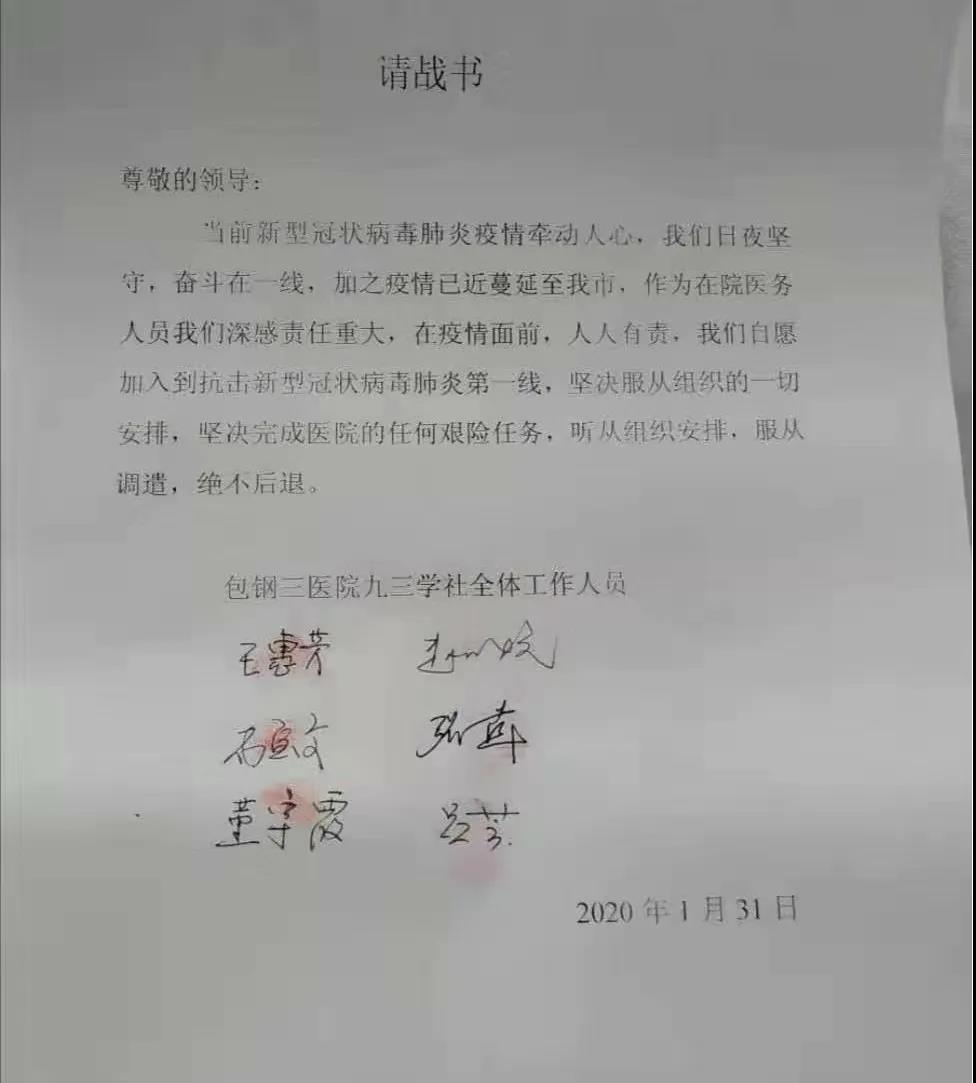 请战书
尊敬的领导：
当前新型冠状病毒肺炎疫情牵动人心，我们日夜坚
守，奋斗在一线，加之疫情已近蔓延至我市，作为在院医务
人员我们深感责任重大，在疫情面前，人人有责，我们自愿
加入到抗击新型冠状病毒肺炎第一线，坚决服从组织的一切
安排，坚决完成医院的任何艰险任务，听从组织安排，服从
调遣，绝不后退。
包钢三医院九三学社全体工作人员
王惠芳
董宇霞 吕芸
2020 年 1 月 31 日